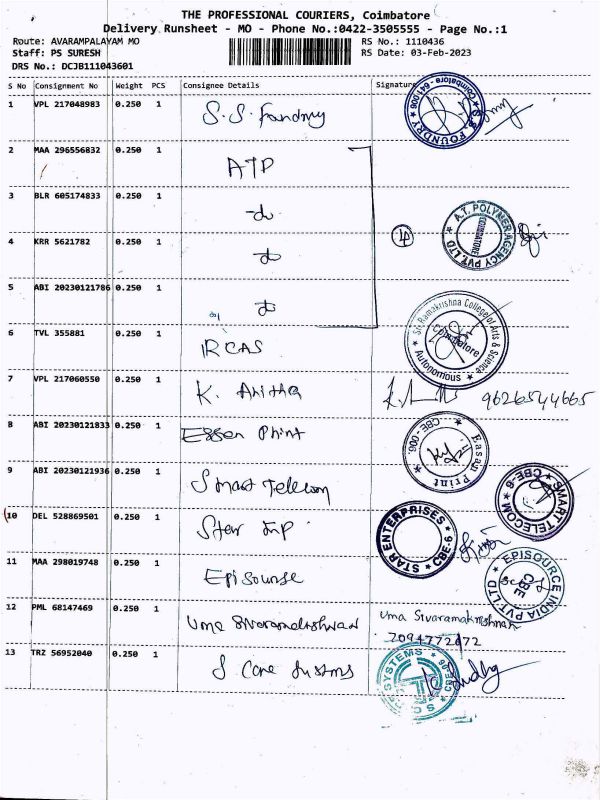 THE PROFESSIONAL COURIERS, Coimbatore
Delivery Runsheet - MO - Phone No.:0422-3505555 - Page No.:1
Route: AVARAMPALAYAM MO RS No.: 1110436
Staff: PS SURESH RS Date: 03-Feb-2023
DRS No.: DCJB111043601
S No Consignment No Weight PCS Consignee Details Signature
1 VPL 217048983 0.250 1 S.S. Foundry
S.S. FOUNDRY Coimbatore - 641 006
2 MAA 296556832 0.250 1 ATP
3 BLR 605174833 0.250 1 -do-
4 KRR 5621782 0.250 1 -do- 4
A.T. POLYMER AGENCY PVT. LTD COIMBATORE
5 ABI 20230121786 0.250 1 do
6 TVL 355881 0.250 1 RCAS
Sri Ramakrishna College of Arts & Science Autonomous Coimbatore
7 VPL 217060550 0.250 1 K. Anitha 9626544665
8 ABI 20230121833 0.250 1 Essen Print
CBE - 006. Print
9 ABI 20230121936 0.250 1 Smart Telecom
SMART TELECOM CBE-6
10 DEL 528869501 0.250 1 Star Imp
STAR ENTERPRISES CBE-6
11 MAA 298019748 0.250 1 Episourse
EPISOURCE INDIA PVT. LTD CBE
12 PML 68147469 0.250 1 Uma Sivaramakrishnan Uma Sivaramakrishnan
7094772472
13 TRZ 56952040 0.250 1 S Core Systms
SYSTEMS CBE-06